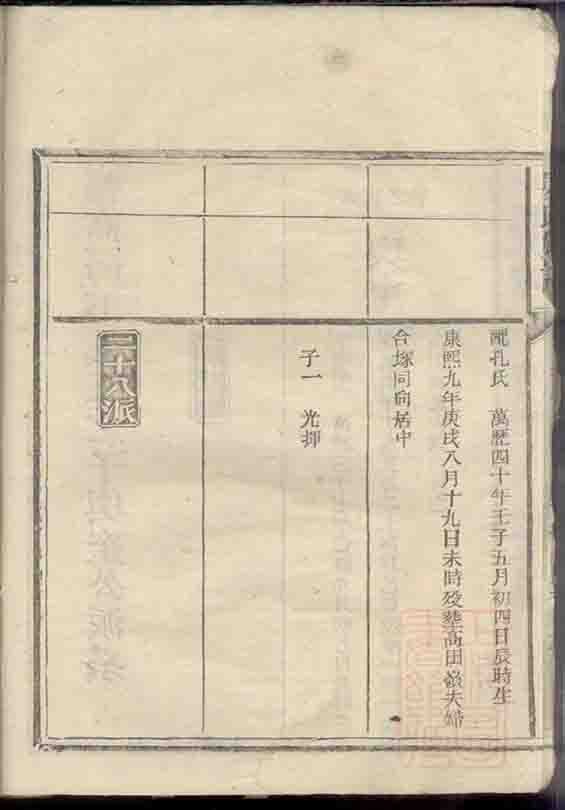 配孔氏　萬歷四十年壬子五月初四日辰時生
康熙九年庚戌八月十九日未時歿葬高田嶺夫婦
合塚同向居中
子一　光押
二十八派